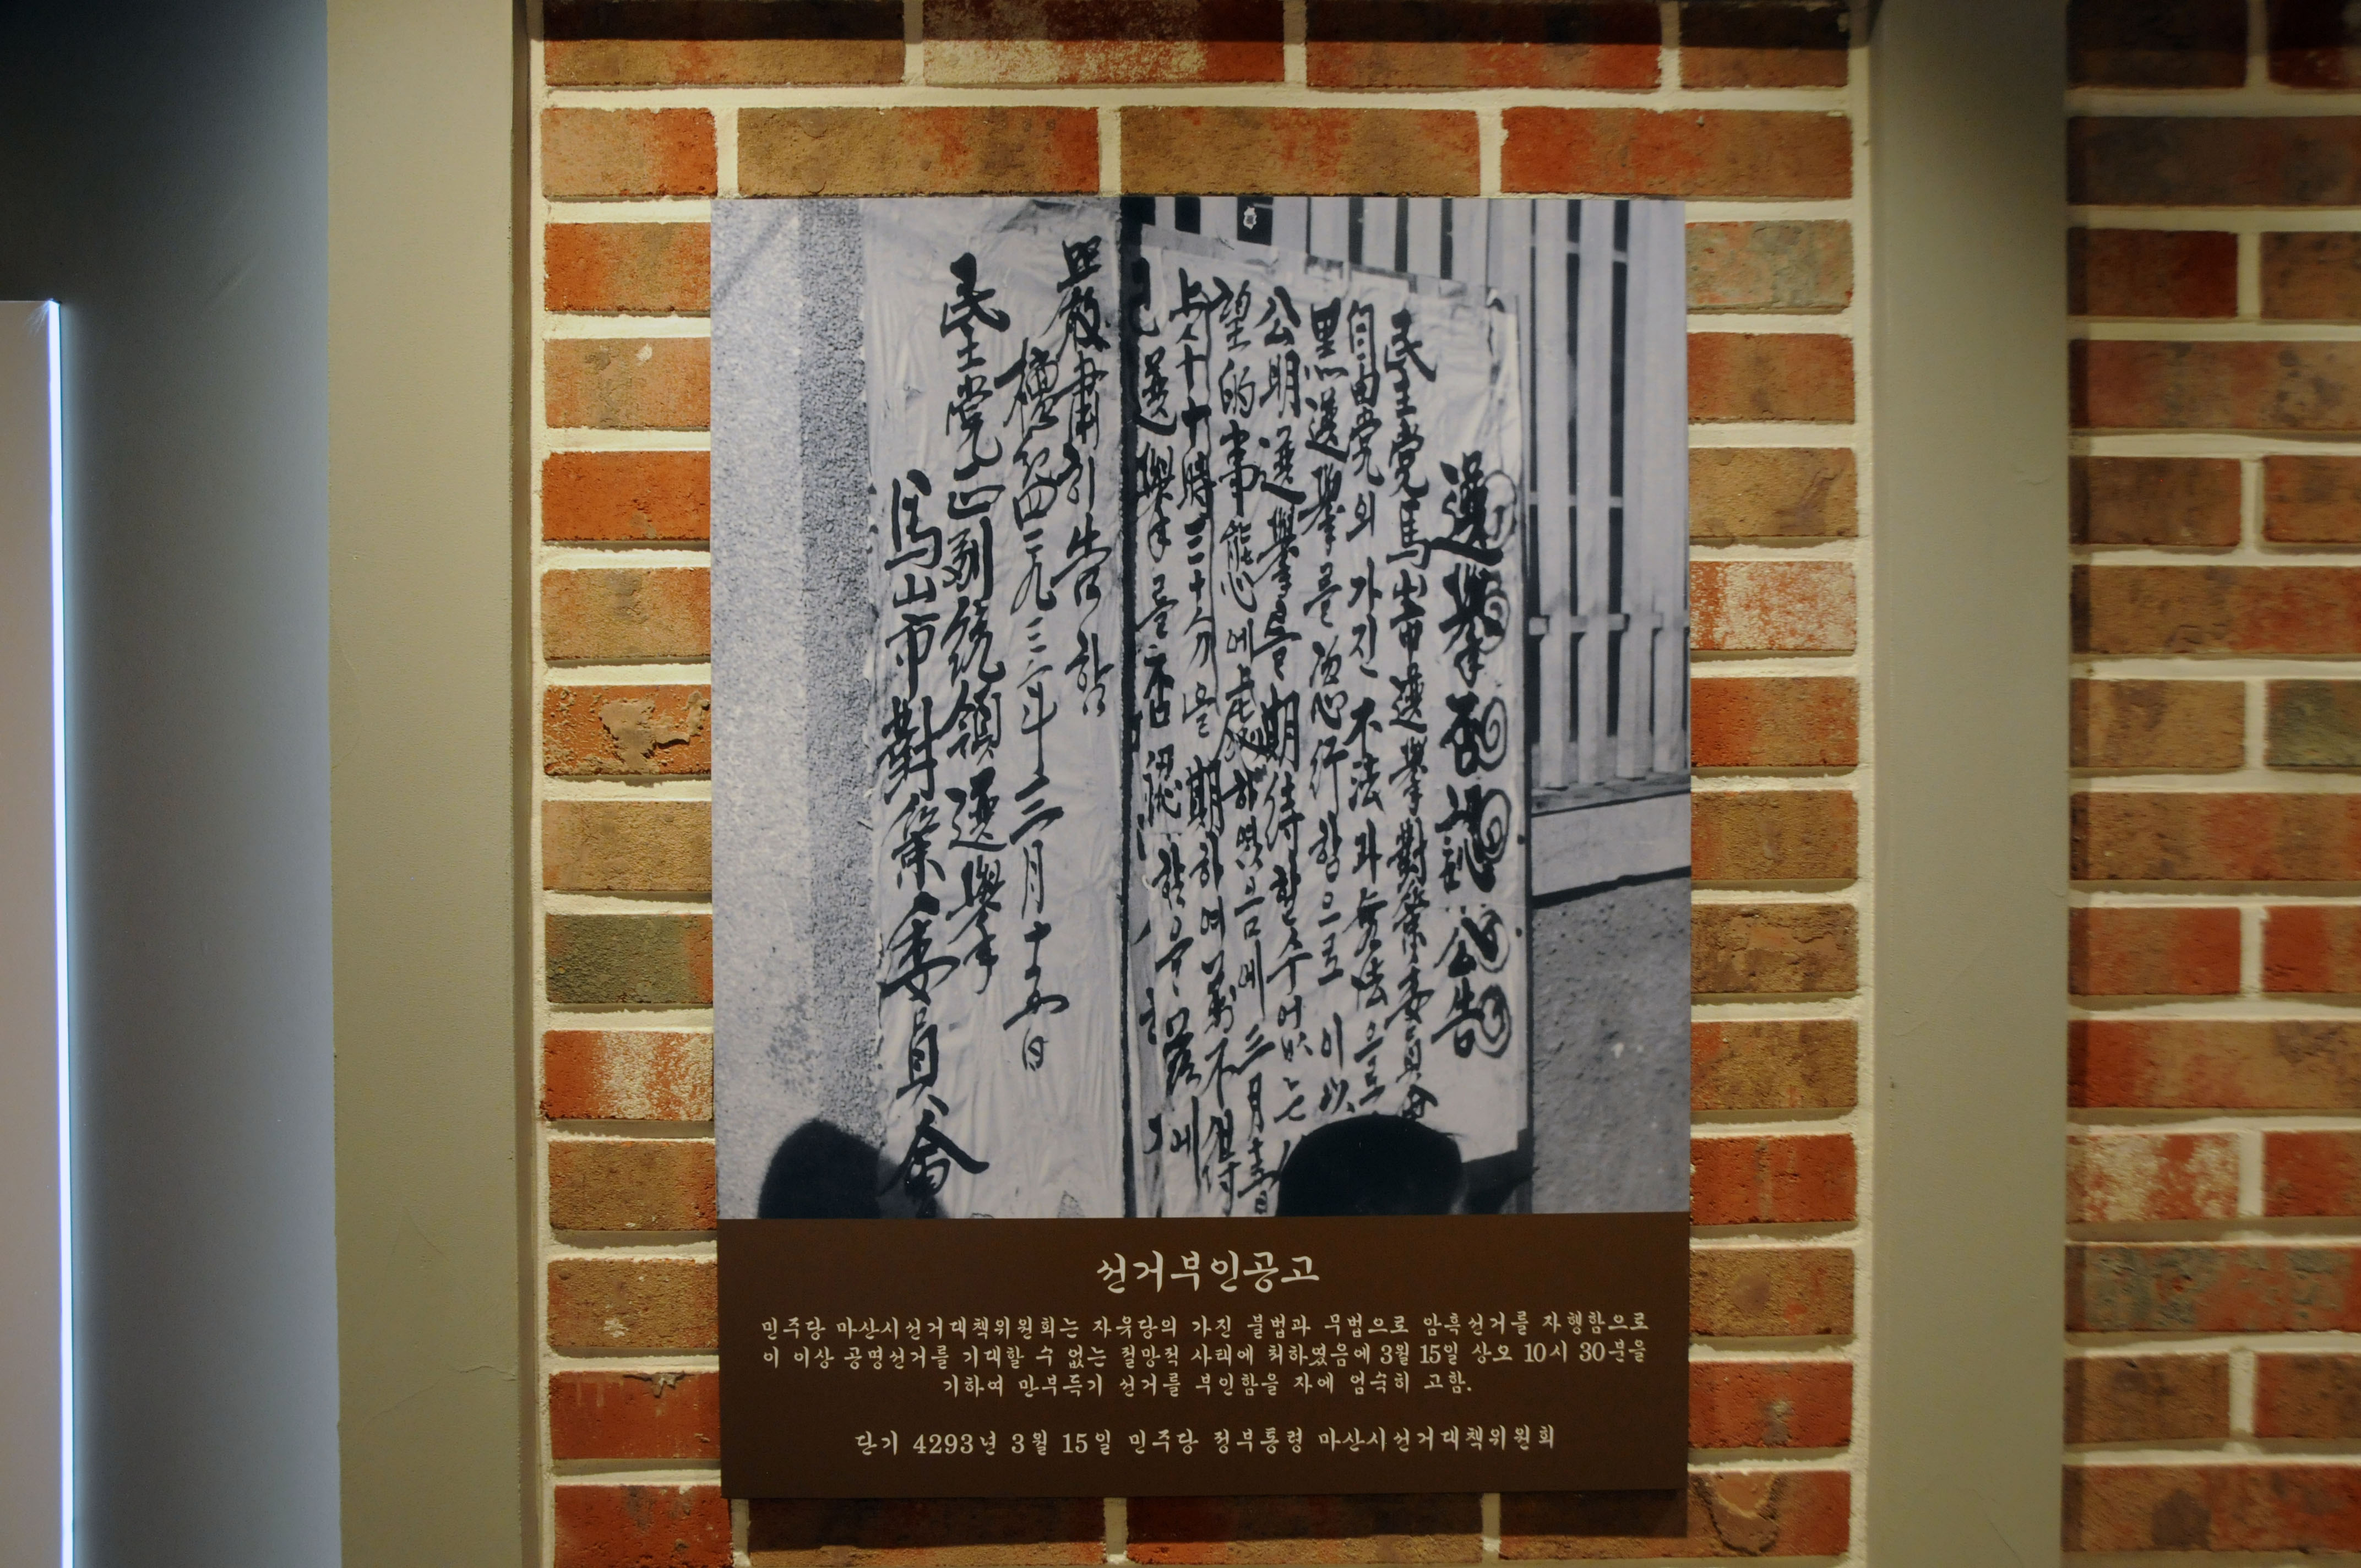 選擧否認公告
民主党馬山市選擧對策委員會
自由党의 가진 不法과 無法으로
黑選擧를 恣行함으로 이以
公明選擧를 期待할수없는
望的事態에 処하였음에 三月十五日
上午十時三十分을 期하여 萬不得
已選擧를 否認함을 玆에
嚴肅히 告함
檀紀四二九三年三月十五日
民主党正副統領選擧
馬山市對策委員會
선거부인공고
민주당 마산시선거대책위원회는 자유당의 가진 불법과 무법으로 암흑선거를 자행함으로
이 이상 공명선거를 기대할 수 없는 절망적 사태에 처하였음에 3월 15일 상오 10시 30분을
기하여 만부득기 선거를 부인함을 자에 엄숙히 고함.
단기 4293년 3월 15일 민주당 정부통령 마산시선거대책위원회